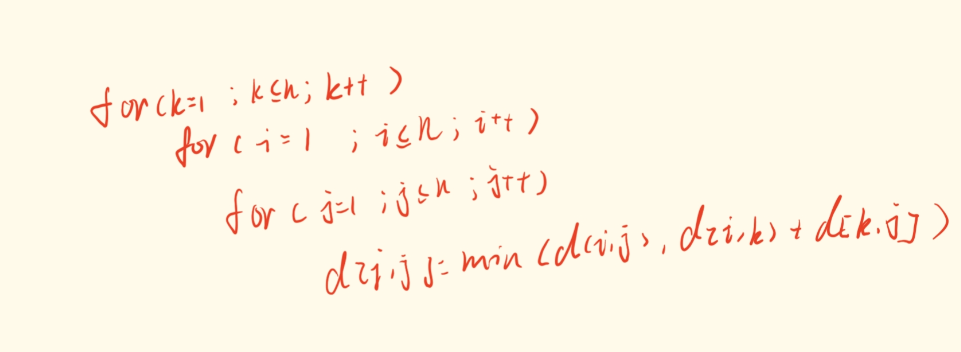 for(k=1 ; k≤n; k++ )
for ( i=1 ; i≤n ; i++ )
for ( j=1 ; j≤n ; j++)
d[i,j]=min (d(i,j), d[i,k) + d[k,j])